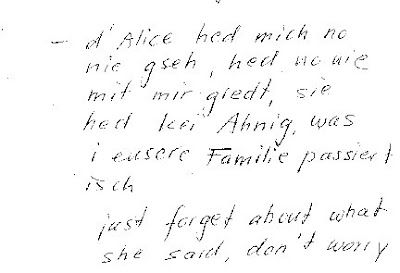 – d'Alice hed mich no
nie gseh, hed no nie
mit mir gredt, sie
hed kei Ahnig, was
i eusere Familie passiert
isch
just forget about what
she said, don't worry